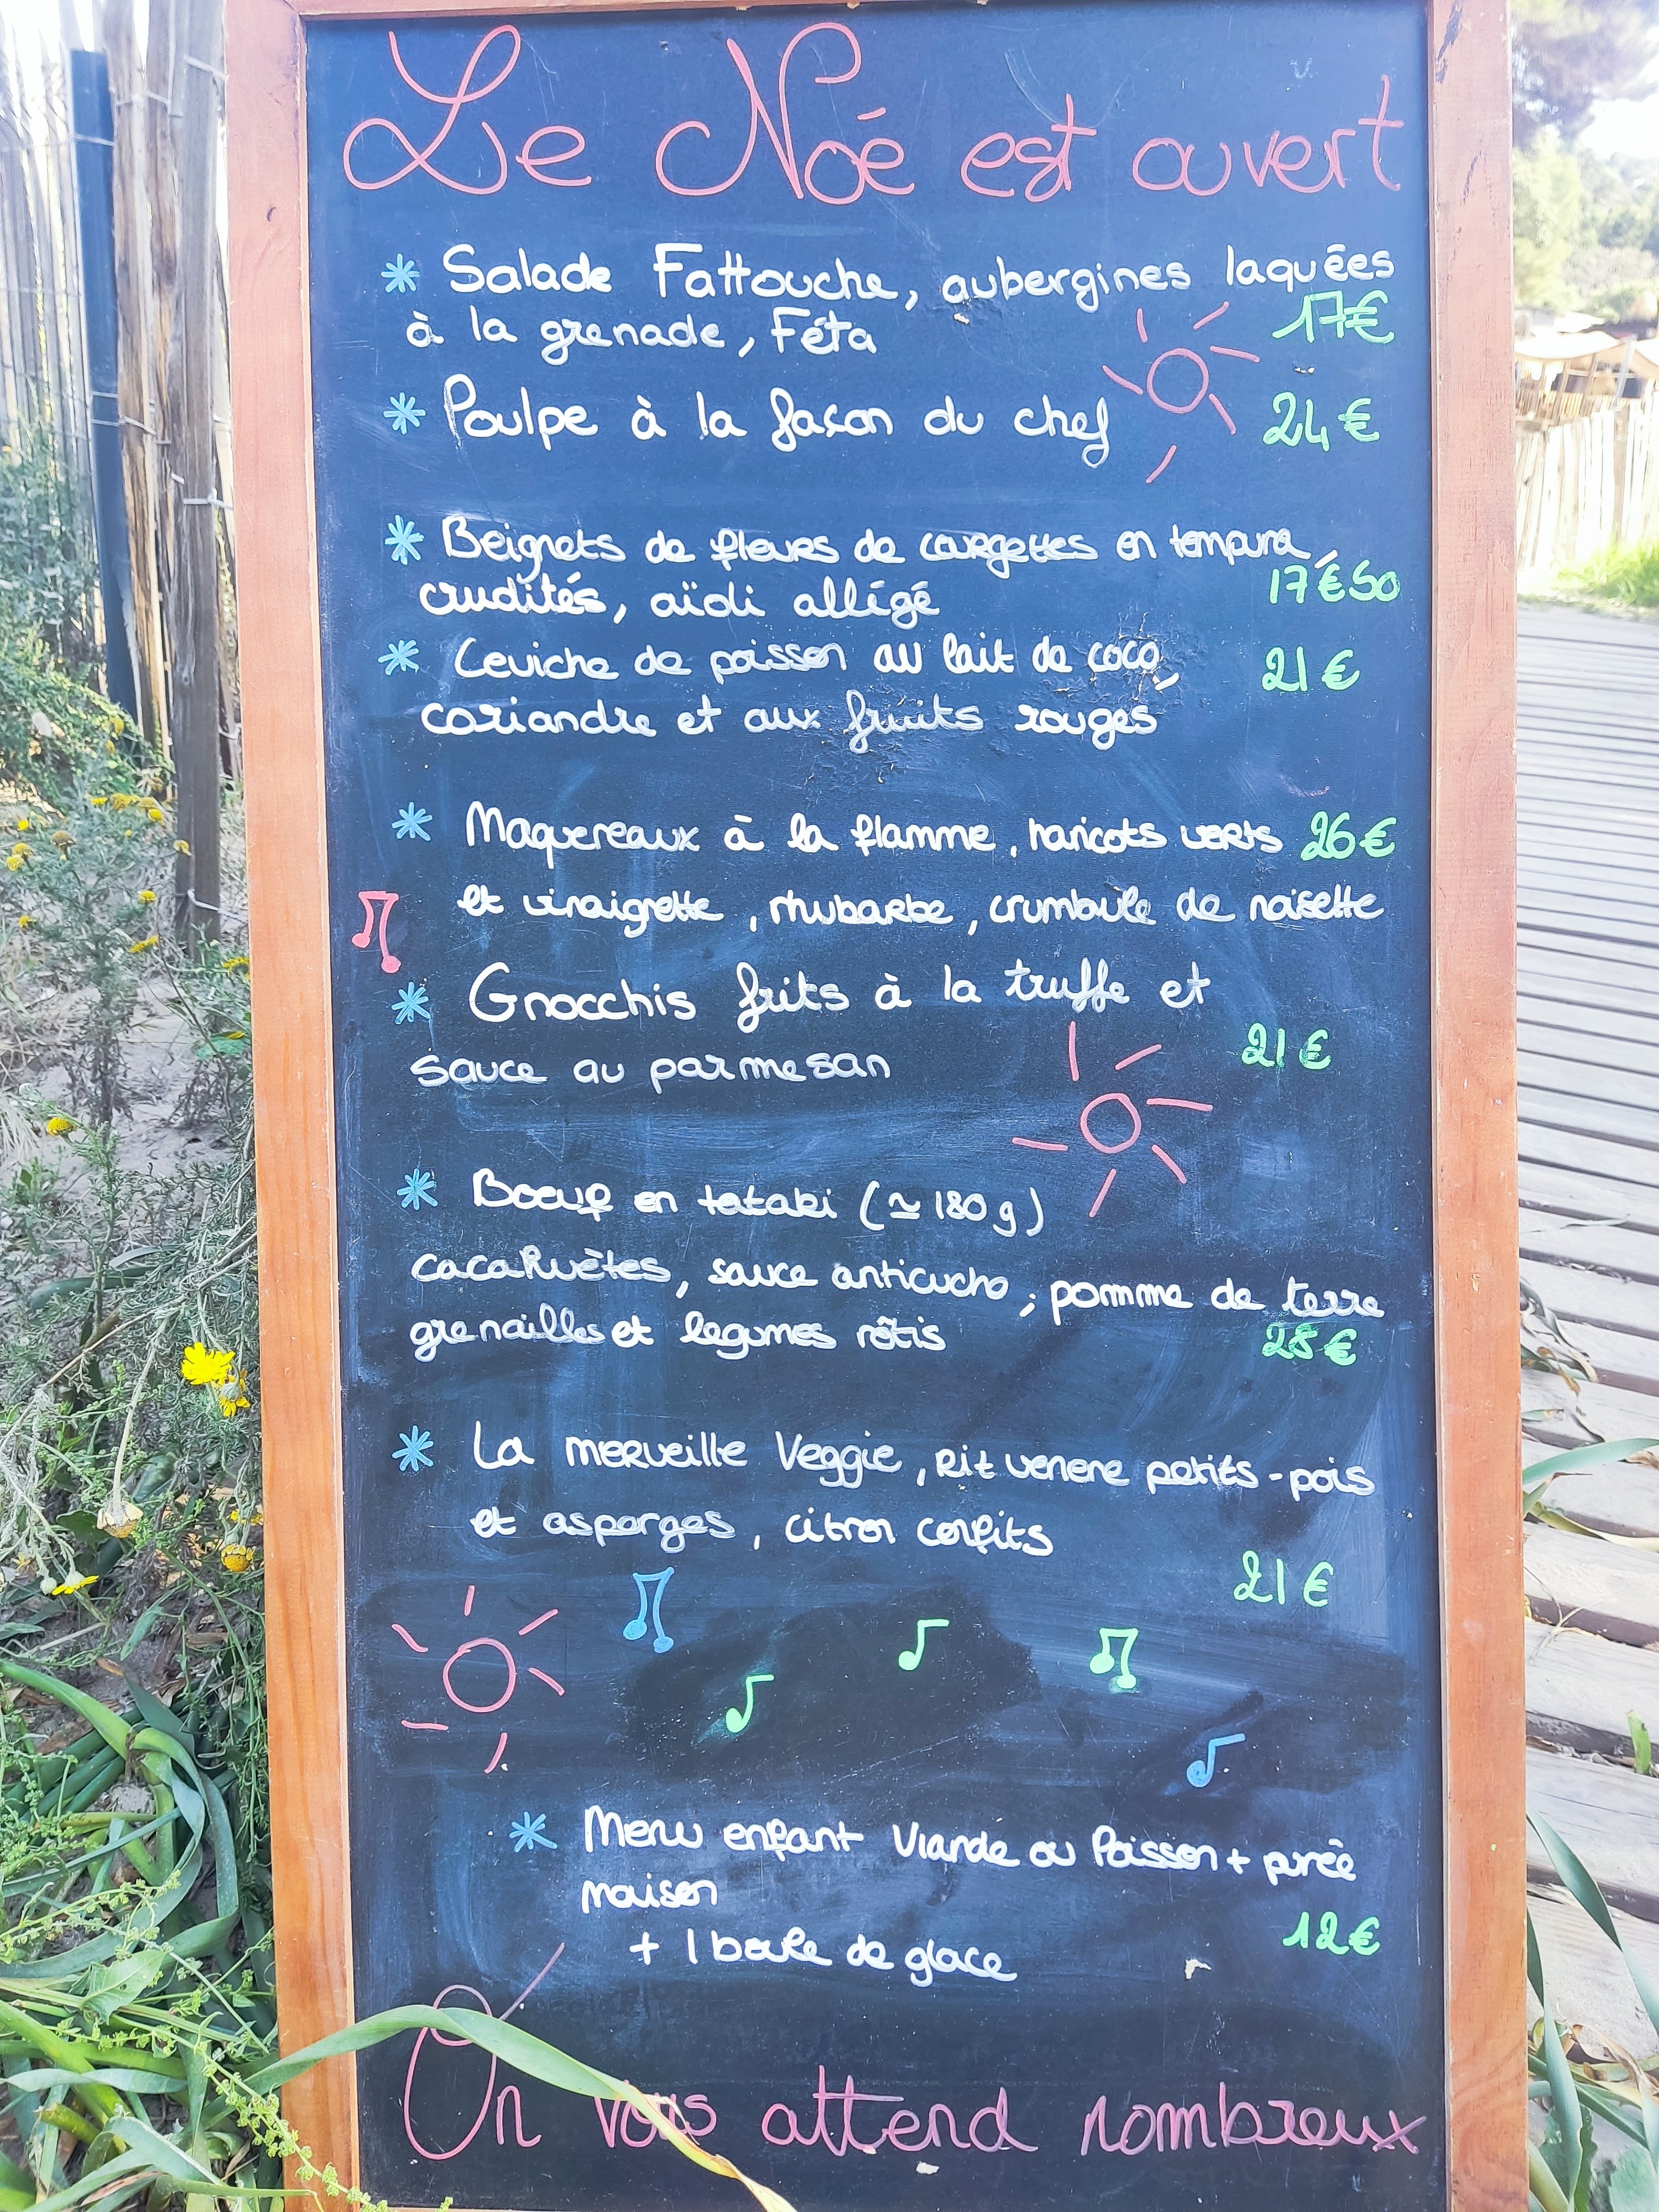 Le Noé est ouvert
* Salade Fattouche, aubergines laquées
à la grenade, Féta 17€
* Poulpe à la façon du chef 24€
* Beignets de fleurs de courgettes en tempura,
crudités, aïoli allégé 17€50
* Ceviche de poisson au lait de coco, 21€
coriandre et aux fruits rouges
* Maquereaux à la flamme, haricots verts 26€
et vinaigrette, rhubarbe, crumbule de noisette
* Gnocchis frits à la truffe et
sauce au parmesan 21€
* Boeuf en tataki (≃ 180 g)
cacahuètes, sauce anticucho, pomme de terre
grenailles et legumes rôtis 28€
* La merveille Veggie, Riz venere petits-pois
et asperges, citron confits
21€
* Menu enfant Viande ou Poisson + purée
maison
+ 1 boule de glace 12€
On vous attend nombreux